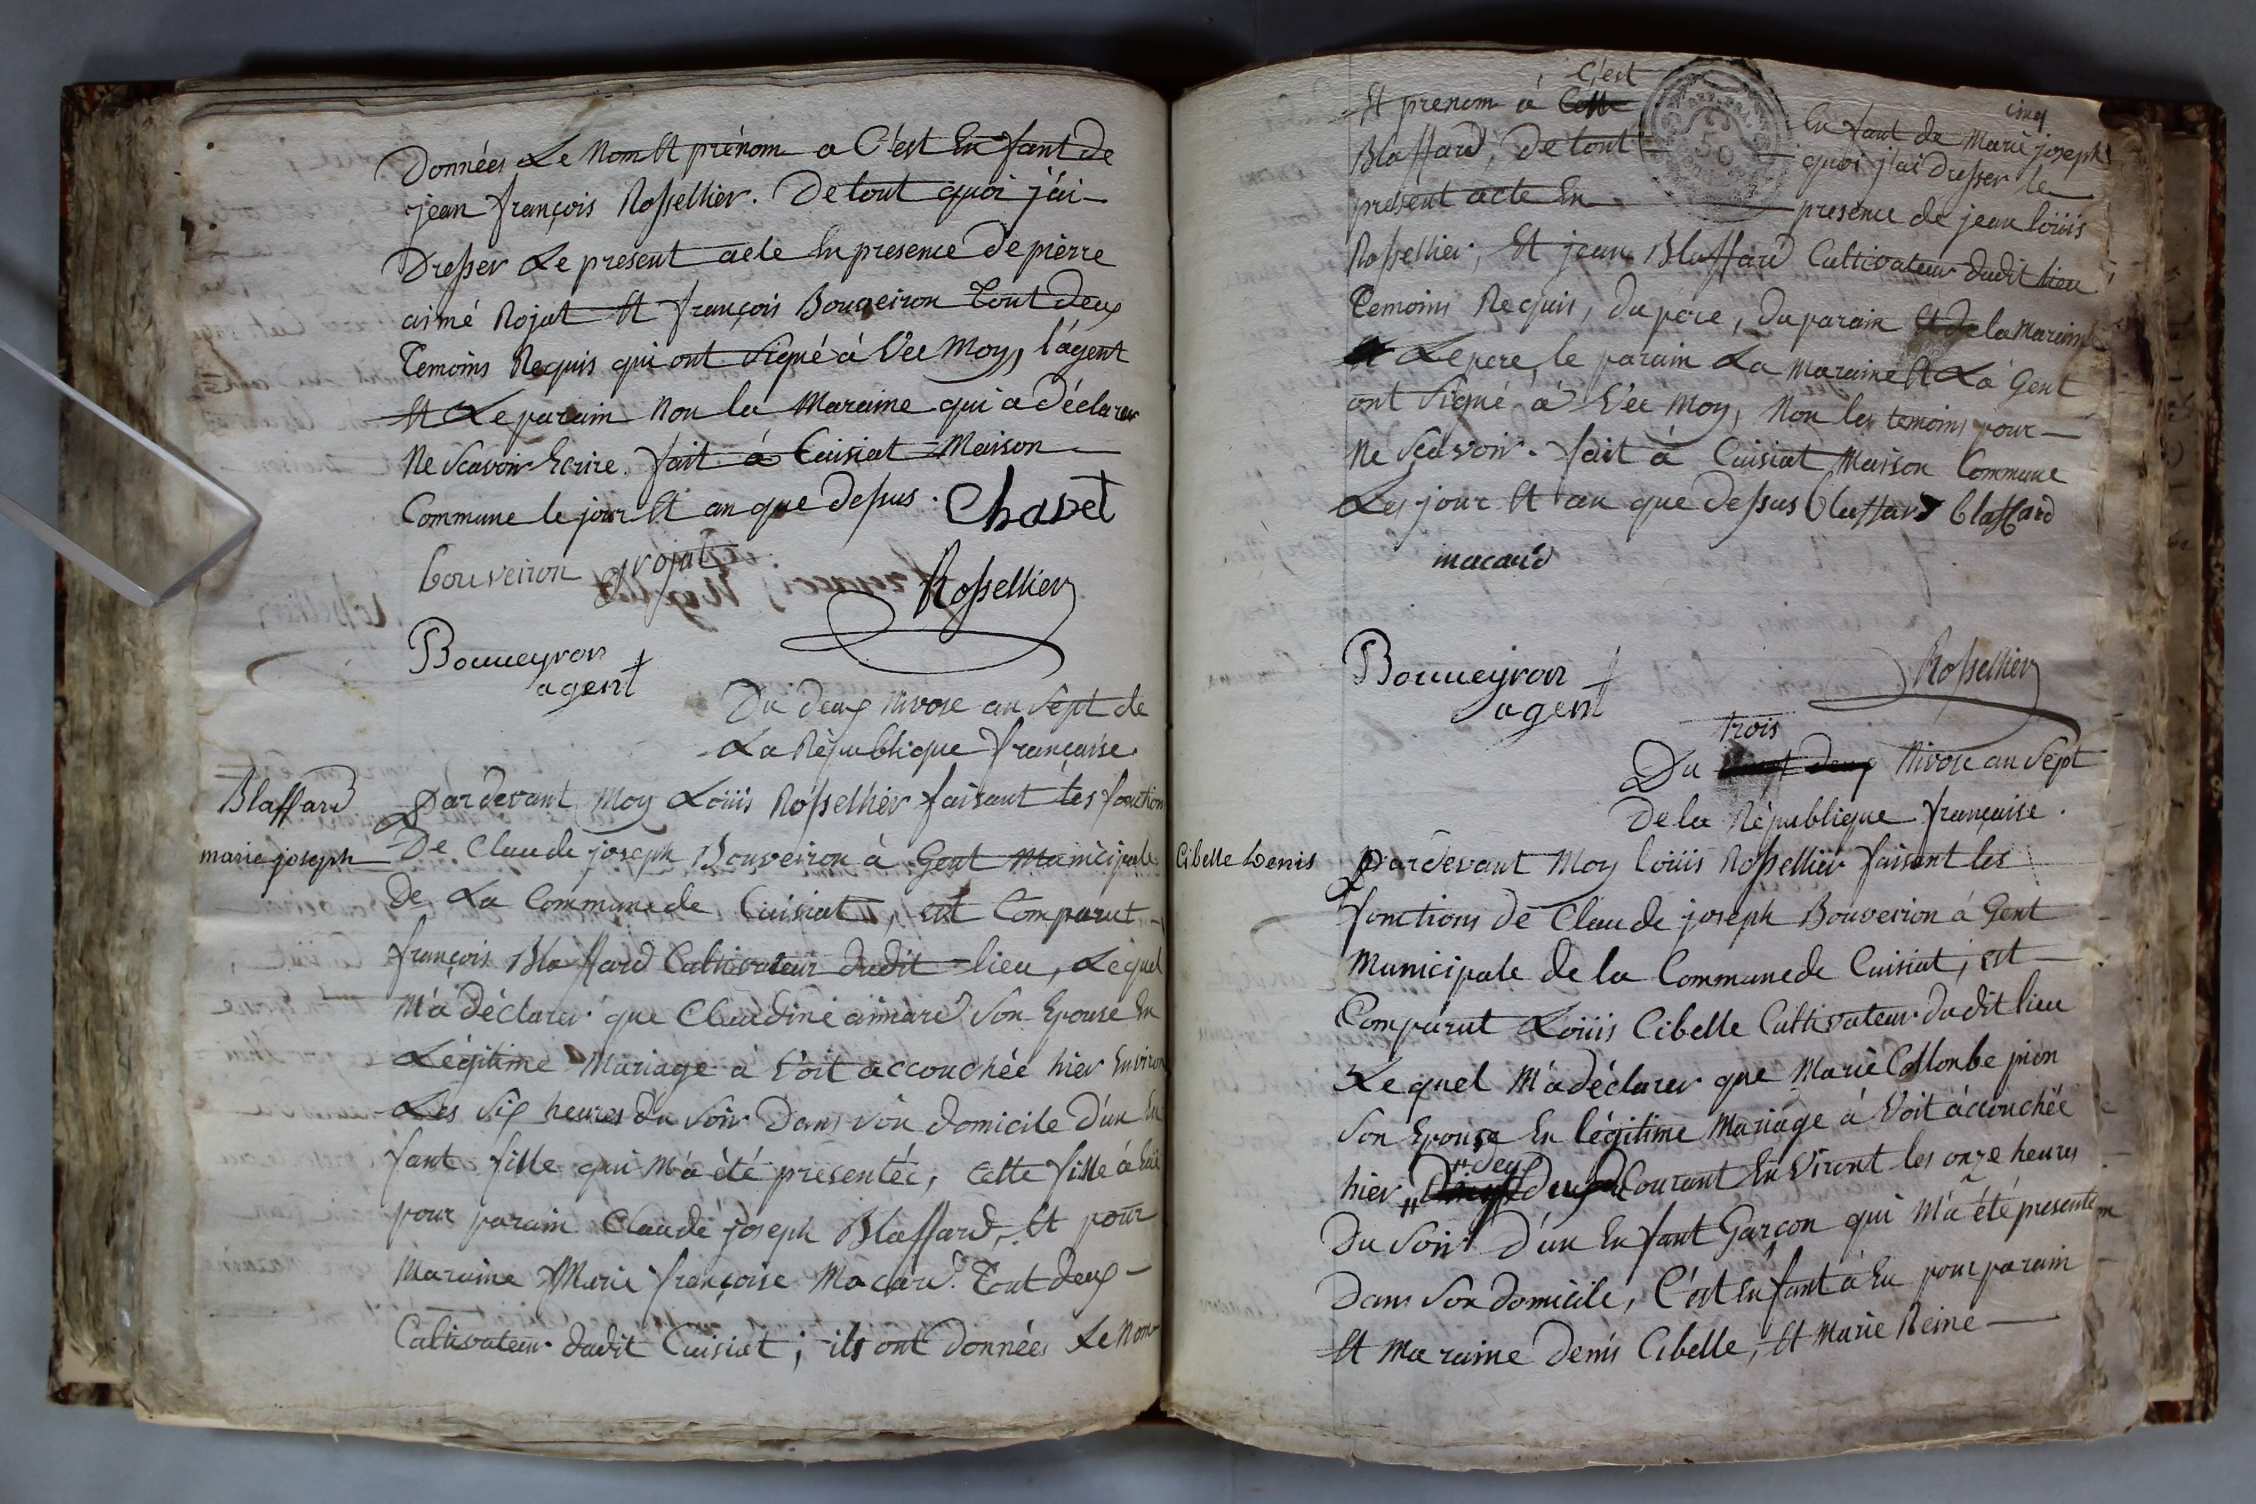 Données Le Nom Et prénom a C'est Enfant de
jean françois Rossellier. De tout quoi j'ai
Dresser Le present acte En presence De pièrre
aimé Rojat Et françois Bouveiron Tout deux
Temoins Requis qui ont Signé à Vec Moy, l'àgent
Et Le parain Non la Maraine qui a déclarer
Ne Scavoir Ecrire. fait à Cuisiat Maison
Commune le jour Et an que dessus. Chavet
bouveiron rojat
Rossellier
Bouueyron
agent
Du deux Nivose an Sept de
La République française.
Blaffard
marie joseph
Pardevant Moy Loüis Rossellier faisant les fonction
De Claude joseph Bouveiron à Gent Municipale
De La Commune de Cuisiat, est Comparut
françois Blaffard Cultivateur dudit lieu, Lequel
M'a déclarer que Claudine aimard Son Epouse En
Légitime Mariage à Voit accouchée hier Environ
Les Six heures du Soir Dans Son domicile d'un En
fant fille qui M'a été presentée, Cette fille à Eüe
pour parain Claude joseph Blaffard, Et pour
Maraine Marie françoise Macard. Tout deux
Cultivateur dudit Cuisiat; ils ont données Le Nom
Et prenom à C'est
Enfant de Marie joseph
Blaffard, De tout quoi j'ai Dresser le
present acte En presence de jean loüis
Rossellier, Et jean Blaffard Cultivateur dudit lieu
Temoins Requis, du pere, du parain Et de la Maraine
Le pere, le parain La Maraine Et La Gent
ont Signé à Vec Moy, Non les temoins pour
Ne Scavoir. fait à Cuisiat Maison Commune
Les jour Et an que dessus blaffard blaffard
macard
Bouueyron
agent
Rossellier
trois
Du Nivose an Sept
De la République française.
Cibelle Denis
Pardevant Moy loüis Rossellier faisant les
fonctions de Claude joseph Bouveiron à Gent
Municipale de la Commune de Cuisiat, est
Comparut Loüis Cibelle Cultivateur dudit lieu
Le quel M'a déclarer que Marie Collonbe pion
Son Epouse En légitime Mariage à Voit àccouchée
hier deux Courant En Viront les onze heures
Du Soir D'un Enfant Garçon qui M'a été presenté
Dans Son domicile, C'est Enfant à Eu pour parain
Et Maraine Denis Cibelle, Et Marie Reine